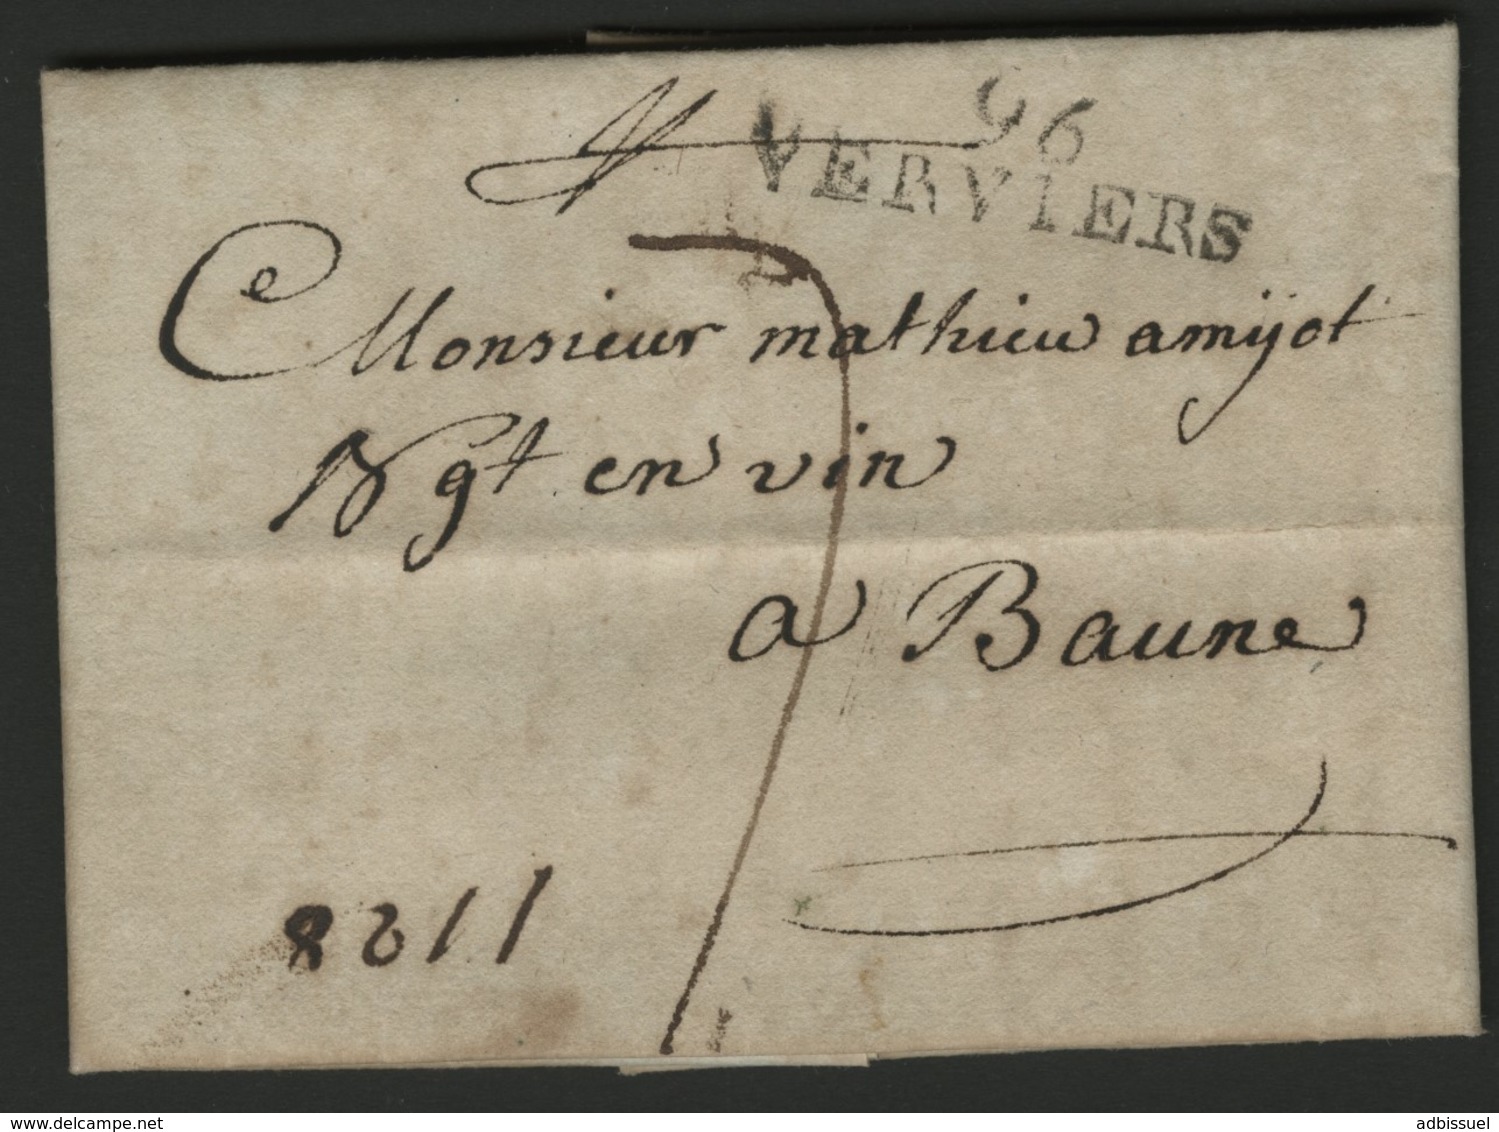 96
VERVIERS
Monsieur mathieu amijot
Ngt en vin
a Baune
7
8211
delcampe.net
adbissuel